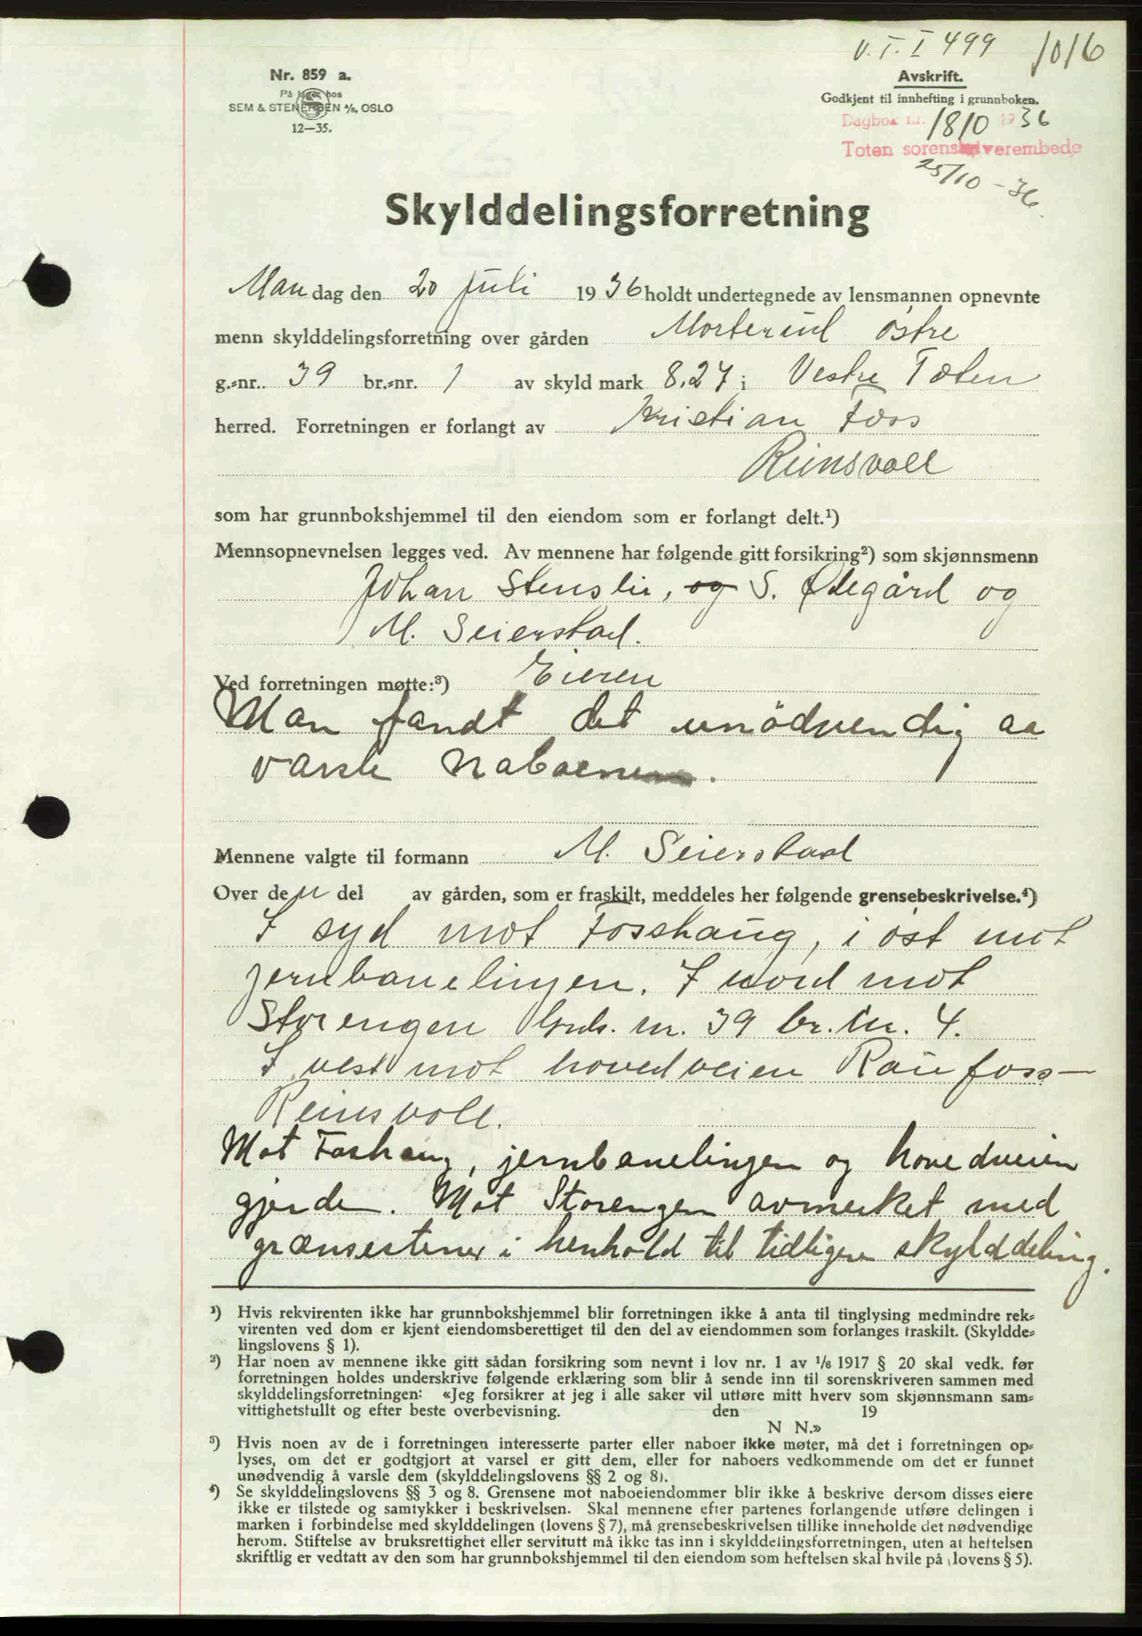 V. T. I 499 1016
Nr. 859 a.
På lager hos
SEM & STENERSEN A/S, OSLO
12—35.
Avskrift.
Godkjent til innhefting i grunnboken.
Dagbok nr. 1810 1936
Toten sorenskriverembede
25/10 - 36.
Skylddelingsforretning
Mandag den 20 juli 1936 holdt undertegnede av lensmannen opnevnte
menn skylddelingsforretning over gården Morterud østre
g.-nr. 39 br.-nr. 1 av skyld mark 8,27 i Vestre Toten
herred. Forretningen er forlangt av Kristian Foss
Reinsvoll
som har grunnbokshjemmel til den eiendom som er forlangt delt.¹)
Mennsopnevnelsen legges ved. Av mennene har følgende gitt forsikring²) som skjønnsmenn
Johan Stenslie, og S. Ødegård og
M. Seierstad.
Ved forretningen møtte:³) Eieren
Man fandt det unödvendig aa
varsle naboene.
Mennene valgte til formann M. Seierstad
Over den del av gården, som er fraskilt, meddeles her følgende grensebeskrivelse.⁴)
I syd mot Fosshaug, i øst mot
jernbanelinjen. I nord mot
Storengen Grds. nr. 39 br. nr. 4.
I vest mot hovedveien Raufoss—
Reinsvoll.
Mot Foshaug, jernbanelingen og hovedveien
gjerde. Mot Storengen avmerket med
grænsestener i henhold til tidligere skylddeling.
¹) Hvis rekvirenten ikke har grunnbokshjemmel blir forretningen ikke å anta til tinglysing medmindre rek-
virenten ved dom er kjent eiendomsberettiget til den del av eiendommen som forlanges fraskilt. (Skyldde-
lingslovens § 1).
²) Har noen av mennene ikke gitt sådan forsikring som nevnt i lov nr. 1 av 1/6 1917 § 20 skal vedk. før
forretningen holdes underskrive følgende erklæring som blir å sende inn til sorenskriveren sammen med
skylddelingsforretningen: «Jeg forsikrer at jeg i alle saker vil utføre mitt hverv som skjønnsmann sam-
vittighetsfullt og efter beste overbevisning. den 19
N N.»
³) Hvis noen av de i forretningen interesserte parter eller naboer ikke møter, må det i forretningen op-
lyses, om det er godtgjort at varsel er gitt dem, eller for naboers vedkommende om det er funnet
unødvendig å varsle dem (skylddelingslovens §§ 2 og 8).
⁴) Se skylddelingslovens §§ 3 og 8. Grensene mot naboeiendommer blir ikke å beskrive dersom disses eiere
ikke er tilstede og samtykker i beskrivelsen. Skal mennene efter partenes forlangende utføre delingen i
marken i forbindelse med skylddelingen (lovens § 7), må grensebeskrivelsen tillike inneholde det nødvendige
herom. Stiftelse av bruksrettighet eller servitutt må ikke tas inn i skylddelingsforretningen, uten at heftelsen
skriftlig er vedtatt av den som har grunnbokshjemmel til den eiendom som heftelsen skal hvile på (lovens § 5).